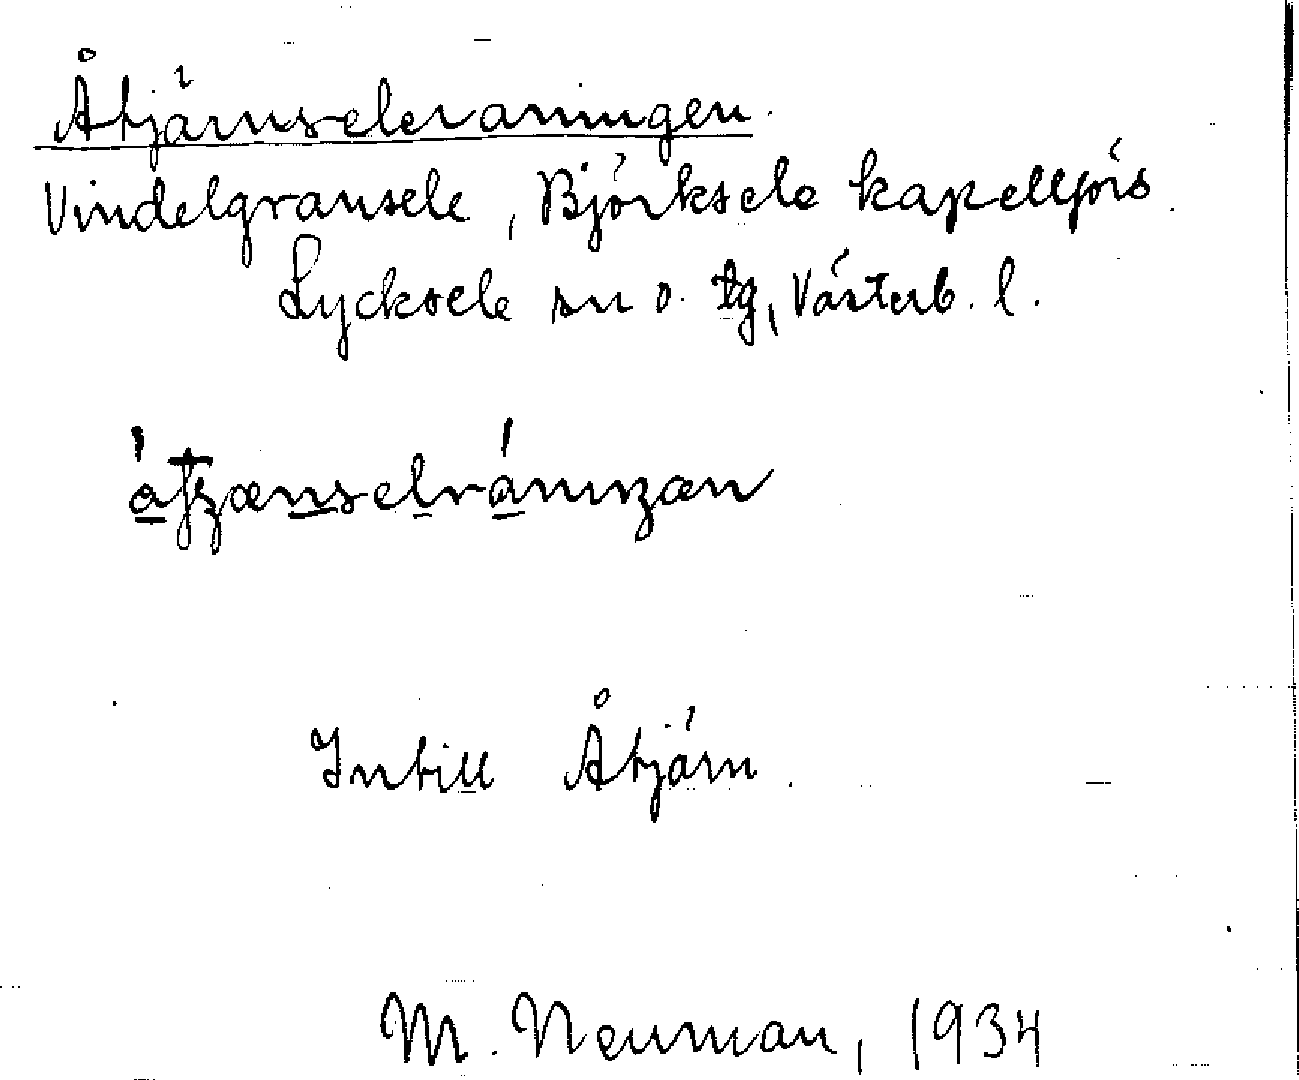 Åtjärnselevaningen
Vindelgransele, Björksele kapellförs.
Lycksele sn o. tg, Västerb. l.
Intill Åtjärn.
M. Neuman, 1934